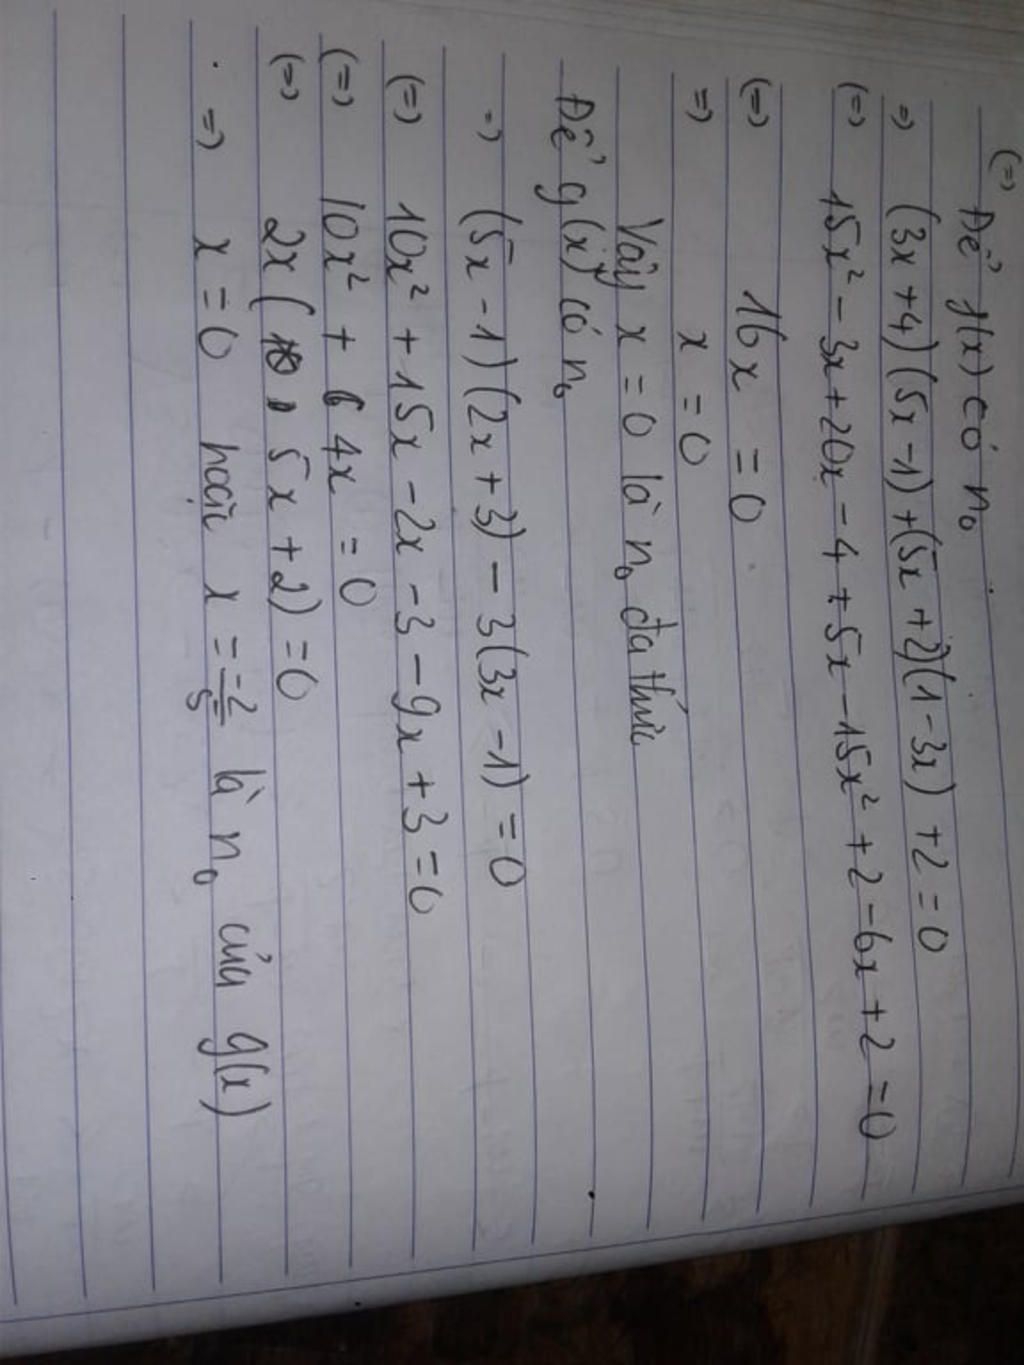 (=) Để f(x) có n₀
=) (3x+4)(5x-1)+(5x+2)(1-3x)+2=0
(=) 15x² - 3x+20x - 4 + 5x - 15x² + 2 - 6x + 2 = 0
(=) 16x = 0
=) x = 0
Vậy x = 0 là n₀ đa thức
Để g(x) có n₀
=) (5x - 1)(2x + 3) - 3(3x - 1) = 0
(=) 10x² + 15x - 2x - 3 - 9x + 3 = 0
(=) 10x² + 4x = 0
(=) 2x( 5x + 2) = 0
=) x = 0 hoặc x = -2/5 là n₀ của g(x)